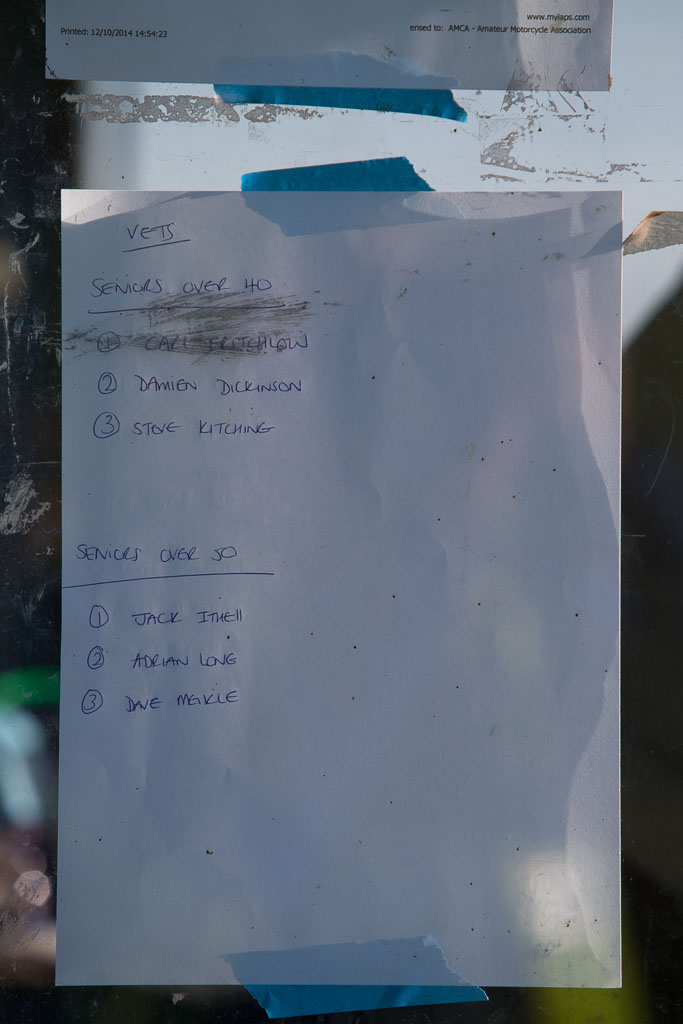 www.mylaps.com
Printed: 12/10/2014 14:54:23 ensed to: AMCA - Amateur Motorcycle Association
VETS
SENIORS OVER 40
① CARL FRITCHLOW
② DAMIEN DICKINSON
③ STEVE KITCHING
SENIORS OVER 50
① JACK ITHEll
② ADRIAN LONG
③ DAVE MEIKLE